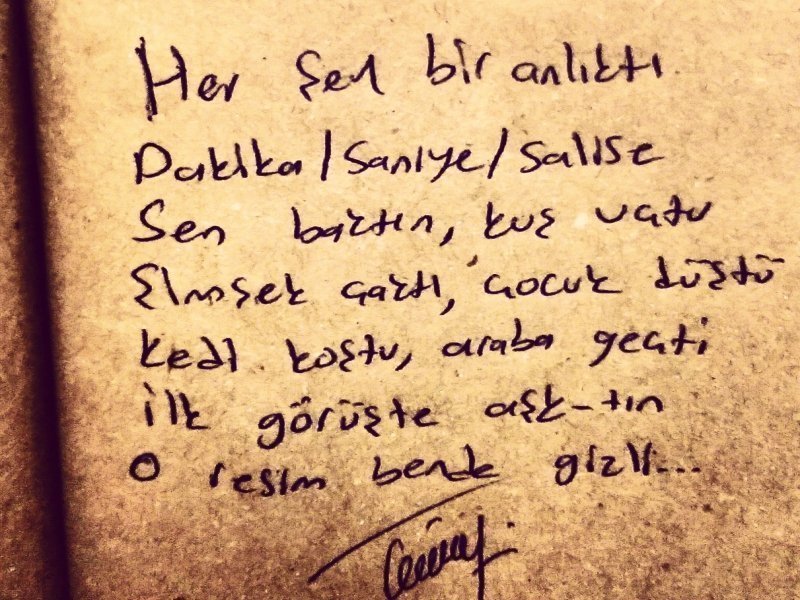 Her şey bir anlıktı
Dakika/saniye/salise
Sen baktın, kuş uçtu
Şimşek çaktı, çocuk düştü
Kedi koştu, araba geçti
İlk görüşte aşk-tın
O resim bende gizli...